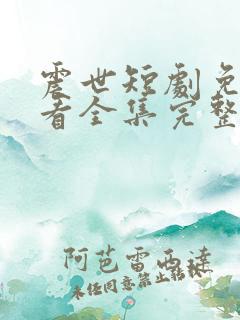 震世短劇免
看全集完整
阿芭雷西達
未经同意禁止转载